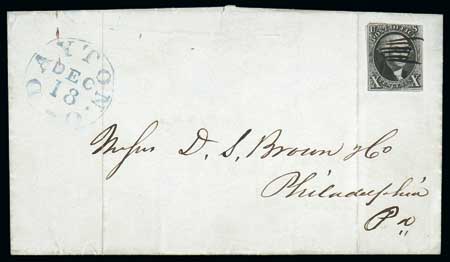 DAYTON O.
DEC
13
POST OFFICE
X X
Messrs D. S. Brown & Co
Philadelphia
Pa